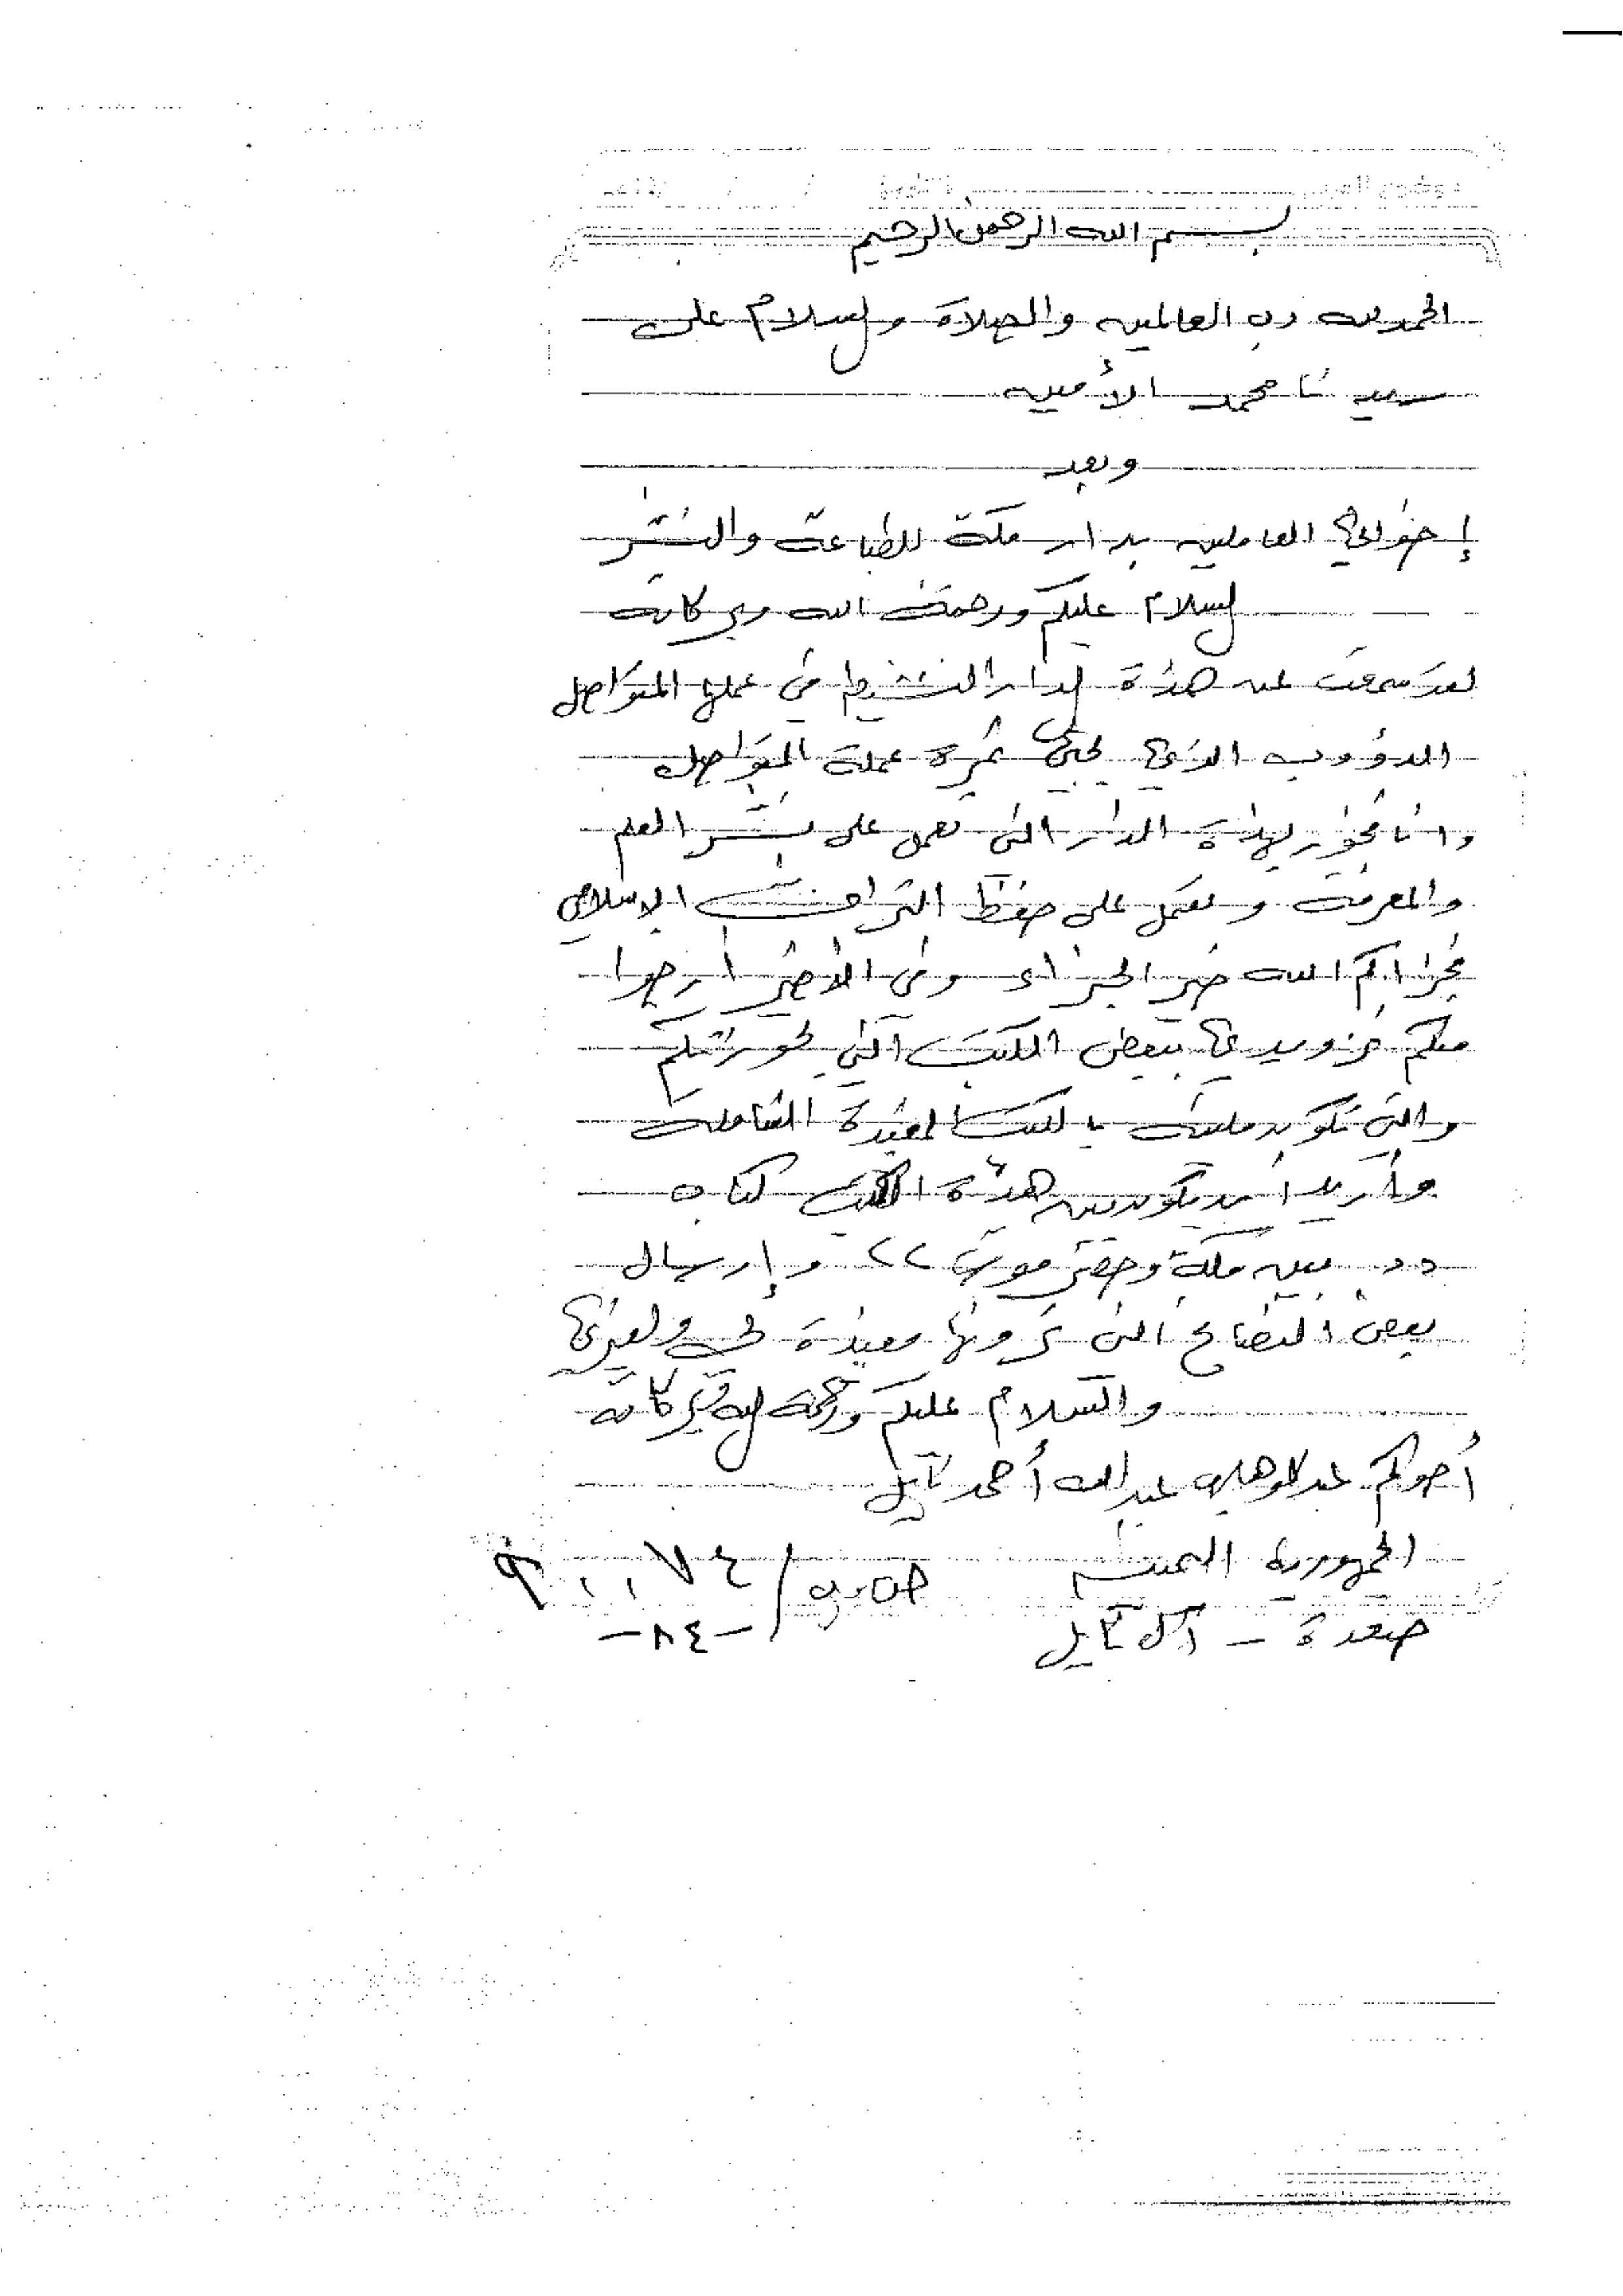 بسم الله الرحمن الرحيم
الحمد لله رب العالمين والصلاة والسلام على
سيدنا محمد الأمين
وبعد
إخواني العاملين بدار مكة للطباعة والنشر
السلام عليكم ورحمة الله وبركاته
لقد سمعت عن هذة الدار النشيط في عملها المتواصل
الدؤوب الذي يجني ثمرة عملة المتواصل
وانا فخور بهذة الدار التي تعمل على نشر العلم
والمعرفة وتعمل على حفظ التراث الإسلامي
فجزاكم الله خير الجزاء وفي الأخير ارجوا
منكم تزويدي ببعض الكتب التي بحوزتكم
والتي تكون مليئة بالكتب المفيدة الشاملة
وأريد أن يكون بين هذة الكتب كتاب
"بين مكة وحضرموت" وإرسال
بعض النصائح التي ترونها مفيدة لي ولغيري
والسلام عليكم ورحمة الله وبركاته
أخوكم عبدالوهاب عبدالله أحمد
الجمهورية اليمنية
صعدة - آل